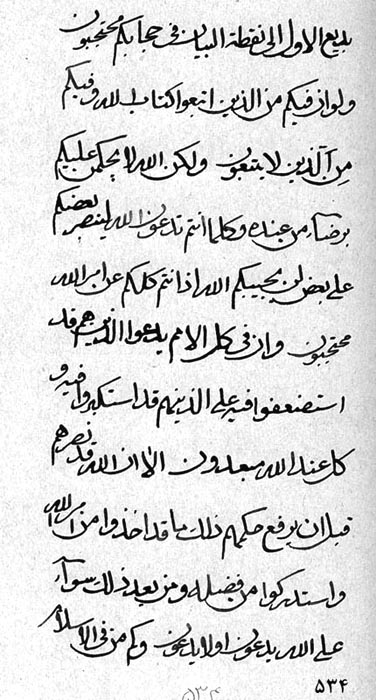 بديع الاول الى نقطة البيان فى حجابكم محتجبون
ولو ان فيكم من الذين اتبعوا كتاب الله وفيكم
من الذين لا يتبعون ولكن الله لا يحكمن عليكم
برضاء من عنده وكلما انتم تدعون الله لينصر بعضكم
على بعض لن يجيبكم الله اذ انتم كلكم عن امر الله
محتجبون وان فى كل الامم يدعوا الذينهم قد
استضعفوا فيه على الذينهم قد استكبروا فيه و
كل عند الله مبعدون الا ان الله قد نصرهم
قبل ان يرفع حكمهم ذلك ما قد اخذوا من امر الله
واستدركوا من فضله ومن بعد ذلك سواء
على الله يدعون او لا يدعون وكم من فى الاسلام
٥٣٤
٥٣٤